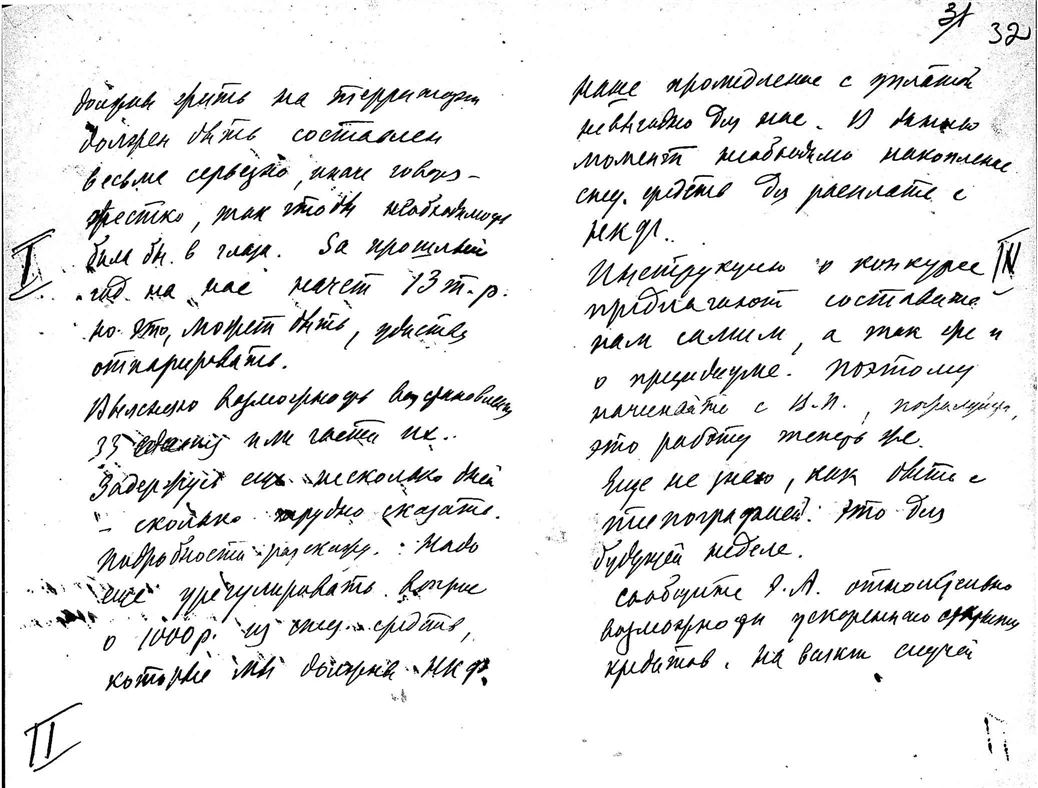 31 32
должны жить на территории
должен быть составлен
весьма серьезно, иначе говоря –
жестко, так чтобы необходимость
била бы в глаза. За прошлый
год на нас начет 13 т.р.
но это, может быть, удастся
отпарировать.
Выясняю возможность восстановления
33 или части их.
Задержусь еще несколько дней
– сколько трудно сказать.
Подробности расскажу. Надо
еще урегулировать вопрос
о 1000 р. из спец. средств,
которые мы должны НКФ.
I
II
наше промедление с уплатой
невыгодно для нас. В данный
момент необходимо накопление
спец. средств для расплаты с
НКФ.
Инструкцию о конкурсе
предлагают составить
нам самим, а так же и
о президиуме. Поэтому
начинайте с В.П., пожалуйста,
эту работу теперь же.
Еще не знаю, как быть с
типографией. Это для
будущей недели.
Сообщите А. относительно
возможности ускоренного открытия
кредитов. На всякий случай
IV